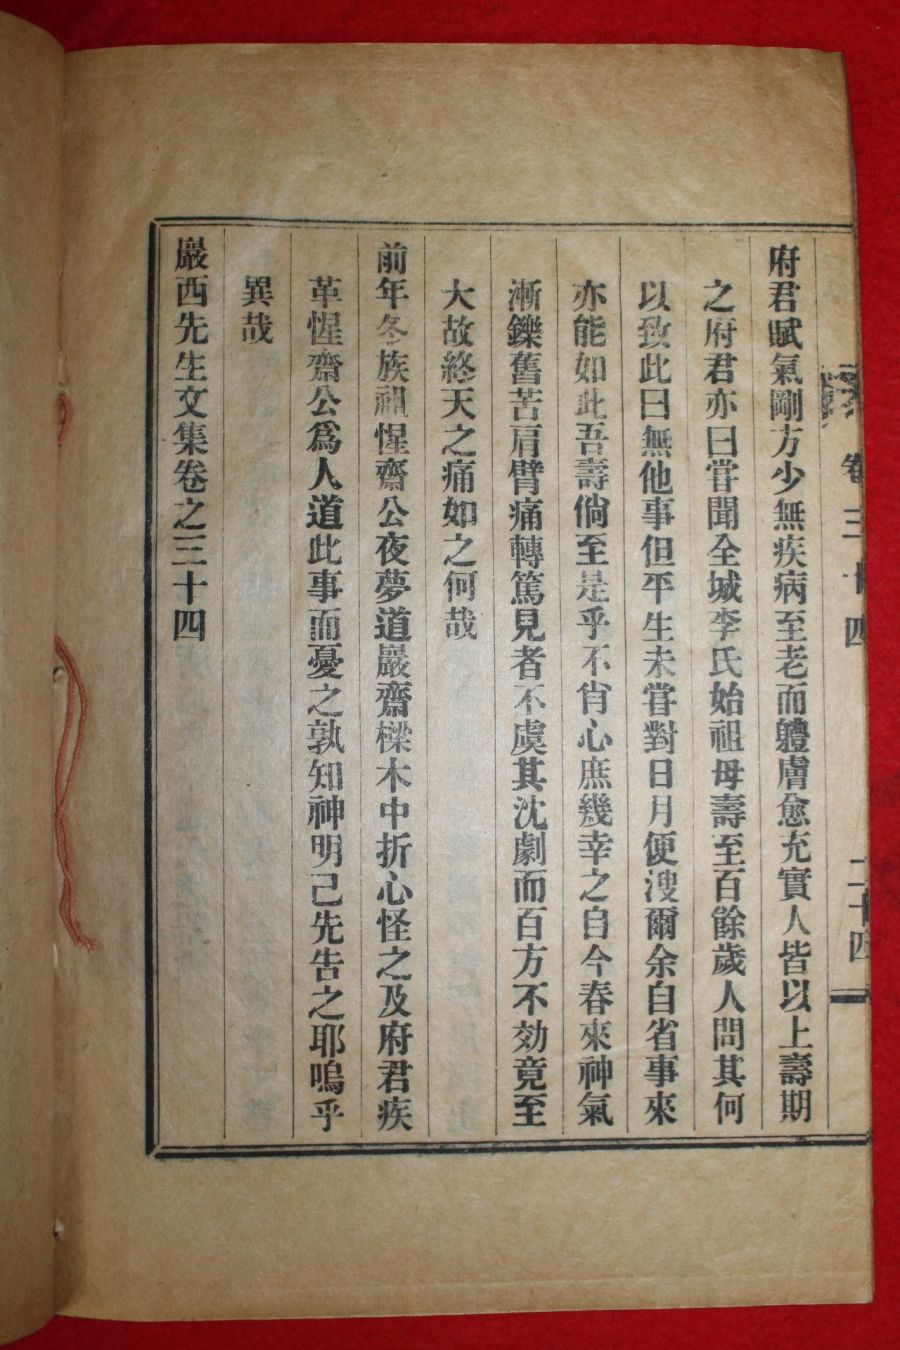 卷三十四 二十四
府君賦氣剛方少無疾病至老而軆膚愈充實人皆以上壽期
之府君亦曰甞聞全城李氏始祖母壽至百餘歲人問其何
以致此曰無他事但平生未甞對日月便溲爾余自省事來
亦能如此吾壽倘至是乎不肖心庶幾幸之自今春來神氣
漸鑠舊苦肩臂痛轉篤見者不虞其沈劇而百方不効竟至
大故終天之痛如之何哉
前年冬族祖惺齋公夜夢道巖齋樑木中折心怪之及府君疾
革惺齋公爲人道此事而憂之孰知神明已先告之耶嗚乎
異哉
巖西先生文集卷之三十四